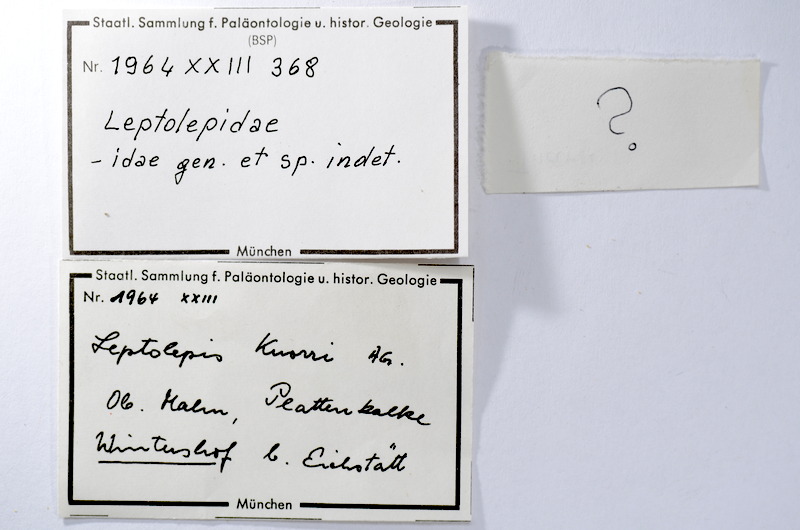 Staatl. Sammlung f. Paläontologie u. histor. Geologie
(BSP)
Nr. 1964 XXIII 368
Leptolepidae
- idae gen. et sp. indet.
München
?
Staatl. Sammlung f. Paläontologie u. histor. Geologie
Nr. 1964 XXIII
Leptolepis Knorri AG.
Ob. Malm, Plattenkalke
Wintershof b. Eichstätt
München